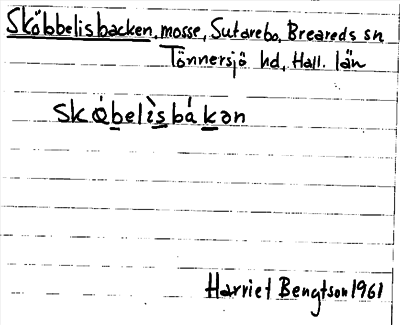 Sköbbelisbacken, mosse, Sutarebo, Breareds sn
Tönnersjö hd, Hall. län
Harriet Bengtson 1961